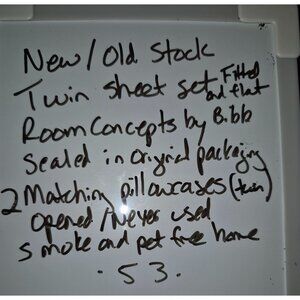 New/Old Stock
Twin sheet set Fitted and flat
Room Concepts by Bibb
Sealed in Original packaging
2 Matching pillowcases (twin)
opened/Never used
smoke and pet free home
. 53.